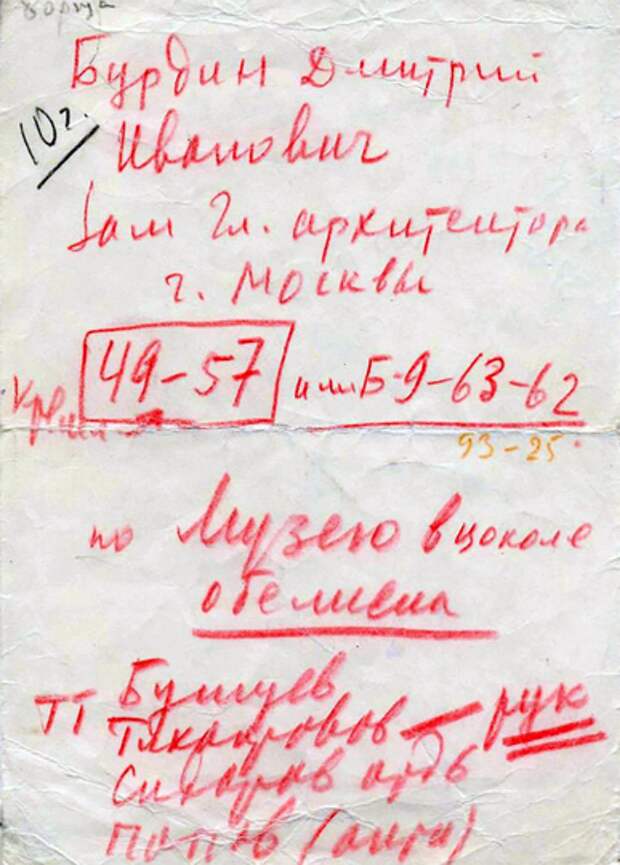 Бурдин Дмитрий
10г.
Иванович
Зам Гл. архитектора
г. Москвы
49-57 или Б-9-63-62
93-25
по Музею в цоколе
обелиска
ТТ Бушуев
рук
Сидоров
Попов